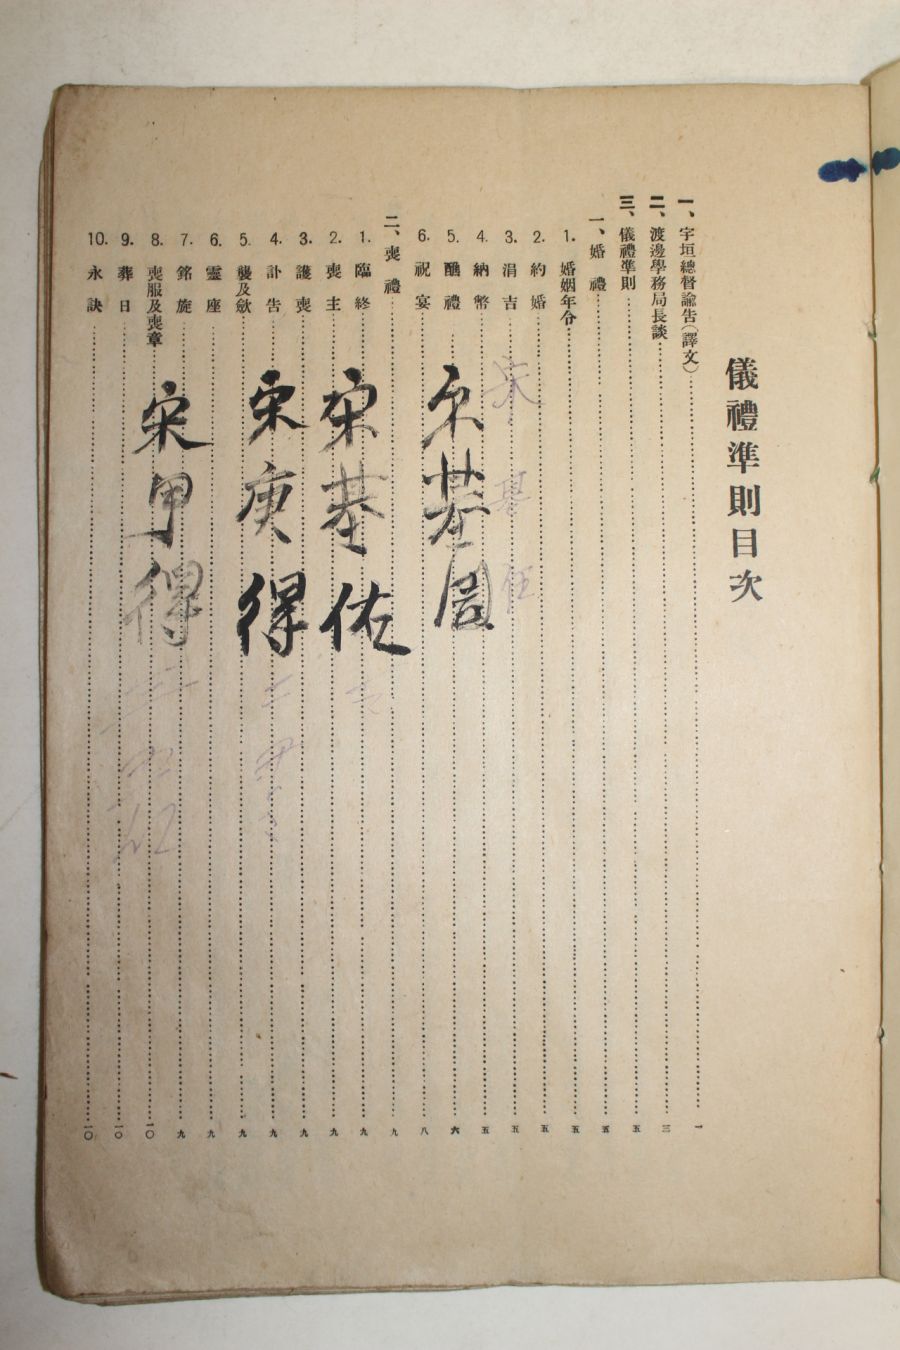 儀禮準則目次
一、宇垣總督諭告(譯文)……一
二、渡邊學務局長談……三
三、儀禮準則……五
一、婚禮……五
1. 婚姻年令……五
2. 約婚……五
3. 涓吉……五
4. 納幣……五
5. 醮禮……六
6. 祝宴……八
二、喪禮……九
1. 臨終……九
2. 喪主……九
3. 護喪……九
4. 訃告……九
5. 襲及歛……九
6. 靈座……九
7. 銘旌……九
8. 喪服及喪章……一〇
9. 葬日……一〇
10. 永訣……一〇
宋基
宋基佑
宋庚得
宋甲得